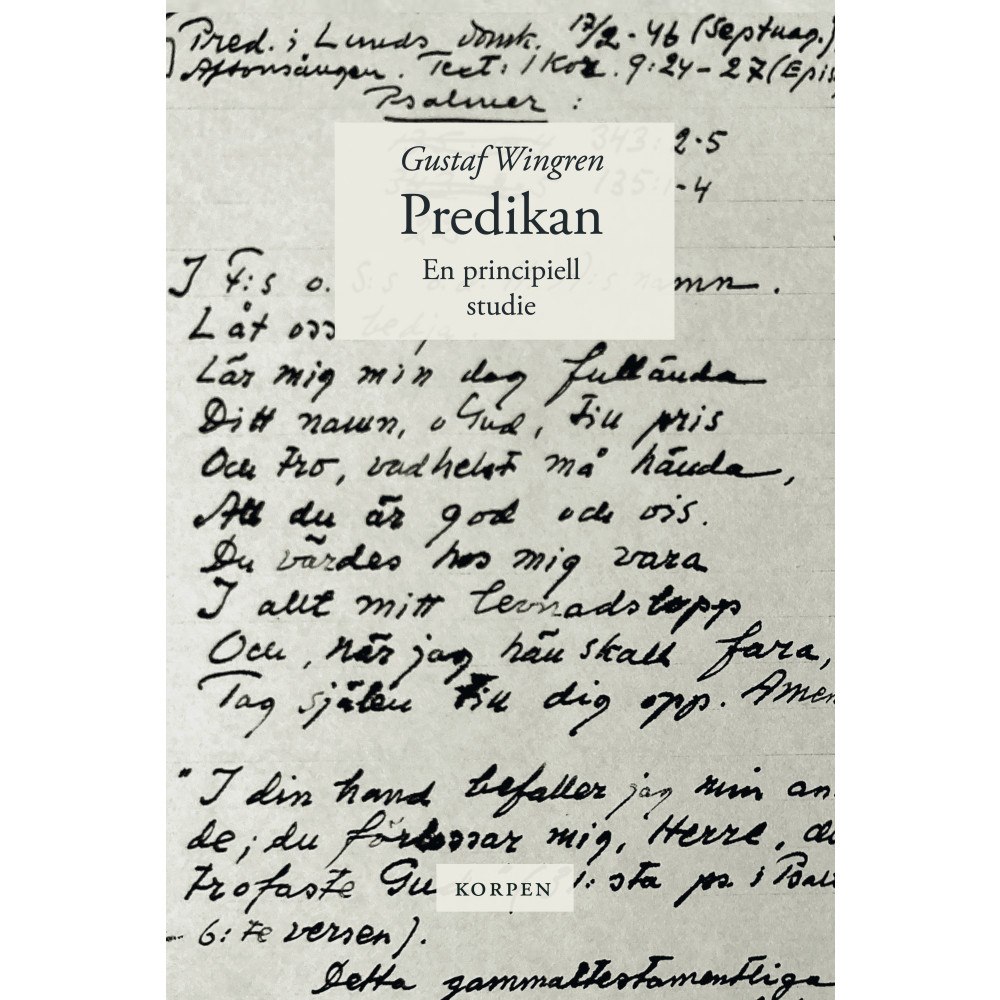 Pred. i Lunds domk. 17/2 - 46 (Septuag.)
Aftonsången. Text: 1 Kor. 9:24-27 (Epis
Psalmer :
343: 2-5
135: 1-4
Gustaf Wingren
Predikan
En principiell
studie
I F:s o. S:s namn.
Låt oss bedja
Lär mig min dag fullända
Ditt namn, o Gud, till pris
Och tro, vadhelst må hända,
Att du är god och vis.
Du värdes hos mig vara
I allt mitt levnadslopp
Och, när jag hän skall fara,
Tag själen till dig opp. Amen
"I din hand befaller jag min an-
de; du förlossar mig, Herre, du
trofaste Gud :sta ps i Psalt
- 6:te versen).
KORPEN
Detta gammaltestamentliga